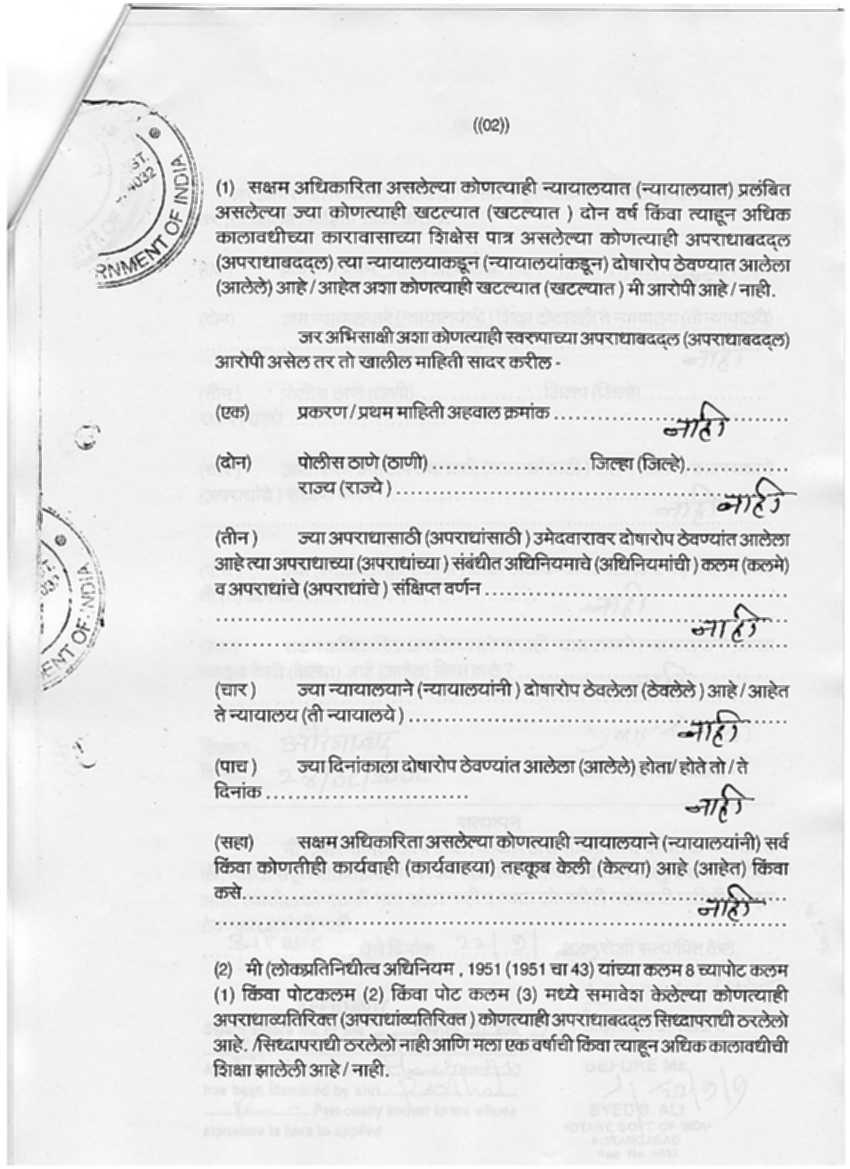 ((02))
(1) सक्षम अधिकारिता असलेल्या कोणत्याही न्यायालयात (न्यायालयात) प्रलंबित
असलेल्या ज्या कोणत्याही खटल्यात (खटल्यात ) दोन वर्ष किंवा त्याहून अधिक
कालावधीच्या कारावासाच्या शिक्षेस पात्र असलेल्या कोणत्याही अपराधाबददल
(अपराधाबददल) त्या न्यायालयाकडून (न्यायालयांकडून) दोषारोप ठेवण्यात आलेला
(आलेले) आहे / आहेत अशा कोणत्याही खटल्यात (खटल्यात ) मी आरोपी आहे / नाही.
जर अभिसाक्षी अशा कोणत्याही स्वरुपाच्या अपराधाबददल (अपराधाबददल)
आरोपी असेल तर तो खालील माहिती सादर करील -
(एक) प्रकरण / प्रथम माहिती अहवाल क्रमांक ........................ नाही
(दोन) पोलीस ठाणे (ठाणी) ..................... जिल्हा (जिल्हे)..............
राज्य (राज्ये ) ............................................. नाही
(तीन ) ज्या अपराधासाठी (अपराधांसाठी ) उमेदवारावर दोषारोप ठेवण्यांत आलेला
आहे त्या अपराधाच्या (अपराधांच्या ) संबंधीत अधिनियमाचे (अधिनियमांची ) कलम (कलमे)
व अपराधांचे (अपराधांचे ) संक्षिप्त वर्णन ........................................
............................................................ नाही
(चार ) ज्या न्यायालयाने (न्यायालयांनी ) दोषारोप ठेवलेला (ठेवलेले ) आहे / आहेत
ते न्यायालय (ती न्यायालये ) ........................................ नाही
(पाच ) ज्या दिनांकाला दोषारोप ठेवण्यांत आलेला (आलेले) होता/ होते तो / ते
दिनांक ............................ नाही
(सहा) सक्षम अधिकारिता असलेल्या कोणत्याही न्यायालयाने (न्यायालयांनी) सर्व
किंवा कोणतीही कार्यवाही (कार्यवाहया) तहकूब केली (केल्या) आहे (आहेत) किंवा
कसे............................................................ नाही
(2) मी (लोकप्रतिनिधीत्व अधिनियम , 1951 (1951 चा 43) यांच्या कलम 8 च्यापोट कलम
(1) किंवा पोटकलम (2) किंवा पोट कलम (3) मध्ये समावेश केलेल्या कोणत्याही
अपराधाव्यतिरिक्त (अपराधांव्यतिरिक्त ) कोणत्याही अपराधाबददल सिध्दापराधी ठरलेलो
आहे. /सिध्दापराधी ठरलेलो नाही आणि मला एक वर्षाची किंवा त्याहून अधिक कालावधीची
शिक्षा झालेली आहे / नाही.
RNMENT OF INDIA
ENT OF INDIA